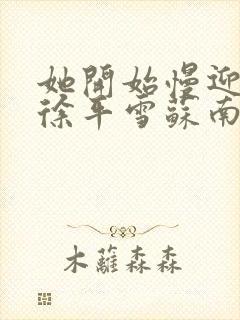 她開始慢迎
徐平雪蘇南
木蘿森森